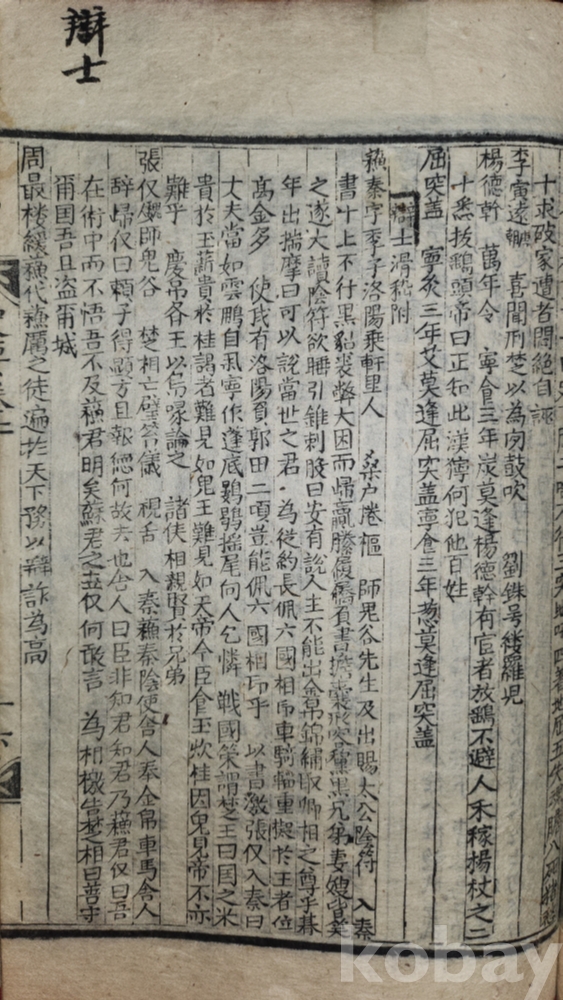 辯士
十求破家遭者悶絕自誣
李寅遠 喜聞刑楚以為肉鼓吹 劉銖号
楊德幹 萬年令 寧食三年炭莫逢楊德幹有官者放鷂不避人禾稼楊杖之二
十悉拔鷂頭帝曰正知此漢獰何犯他百姓
屈突盖 寧炙三年艾莫逢屈突盖寧食三年葱莫逢屈突盖
士滑稽附
蘓秦字季子洛陽乗軒里人 桑户捲樞 師鬼谷先生及出賜太公陰符 入秦
書十上不行黒貂裘弊大困而歸羸縢履屩負書擔橐 黒兄弟妻嫂皆笑
之遂大讀陰符欲睡引錐刺股曰安有說人主不能出金帛錦繡取卿相之尊乎暮
年出揣摩曰可以說當世之君為從約長佩六國相印車騎輜重擬於王者位
高金多 使我有洛陽負郭田二頃豈能佩六國相印乎 以書激張仅入秦曰
丈夫當如雲鵬自 寧作蓬底鷃鷃摇尾向人乞憐 戰國策謂楚王曰国之米
貴於玉薪貴於桂謁者難見如鬼王難見如天帝今臣食玉炊桂因鬼見帝不亦
難乎 慶吊各王以烏喙論之 諸侯相親賢於兄弟
張仅 師鬼谷 楚相亡璧笞儀 視舌 入秦蘓秦陰使舎人奉金帛車馬舎人
辞歸仅曰頼子得顯方且報徳何故去也舎人曰臣非知君知君乃蘓君仅曰吾
在術中而不悟吾不及蘓君明矣蘇君之世仅何敢言 為相檄告楚相曰善守
甯国吾且盗甯城
周最楼緩蘓代蘓厲之徒遍於天下務以辯詐為高
kobay